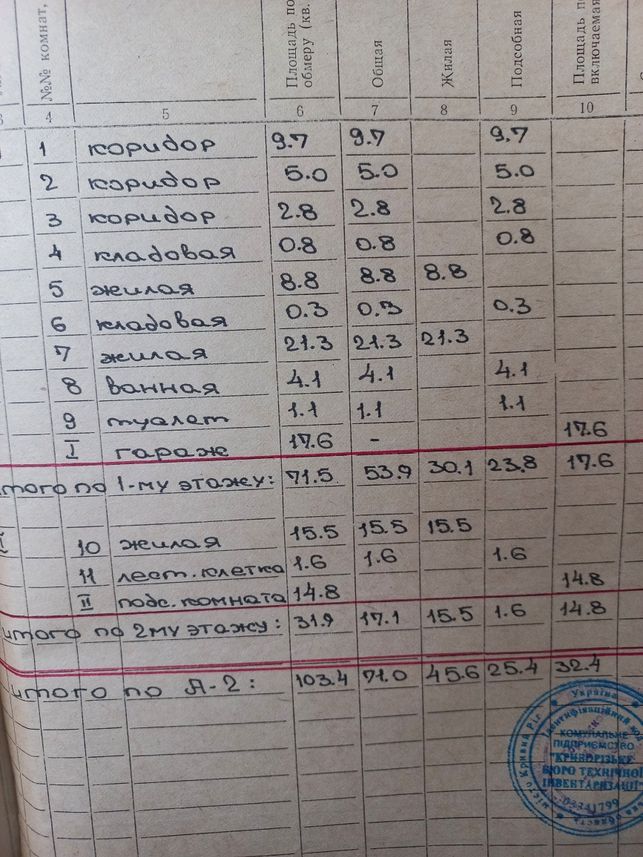 №№ комнат,
Площадь по обмеру (кв.
Общая
Жилая
Подсобная
Площадь включаемая
3 4 5 6 7 8 9 10
1 коридор 9.7 9.7 9.7
2 коридор 5.0 5.0 5.0
3 коридор 2.8 2.8 2.8
4 кладовая 0.8 0.8 0.8
5 жилая 8.8 8.8 8.8
6 кладовая 0.3 0.3 0.3
7 жилая 21.3 21.3 21.3
8 ванная 4.1 4.1 4.1
9 туалет 1.1 1.1 1.1
I гараж 17.6 - 17.6
итого по 1-му этажу: 71.5 53.9 30.1 23.8 17.6
10 жилая 15.5 15.5 15.5
11 лест. клетка 1.6 1.6 1.6
II подс. комната 14.8 14.8
итого по 2му этажу: 31.9 17.1 15.5 1.6 14.8
итого по А-2: 103.4 71.0 45.6 25.4 32.4
Україна
місто Кривий Ріг
Ідентифікаційний код
КОМУНАЛЬНЕ
ПІДПРИЄМСТВО
"КРИВОРІЗЬКЕ
БЮРО ТЕХНІЧНОЇ
ІНВЕНТАРИЗАЦІЇ"
03341799
область